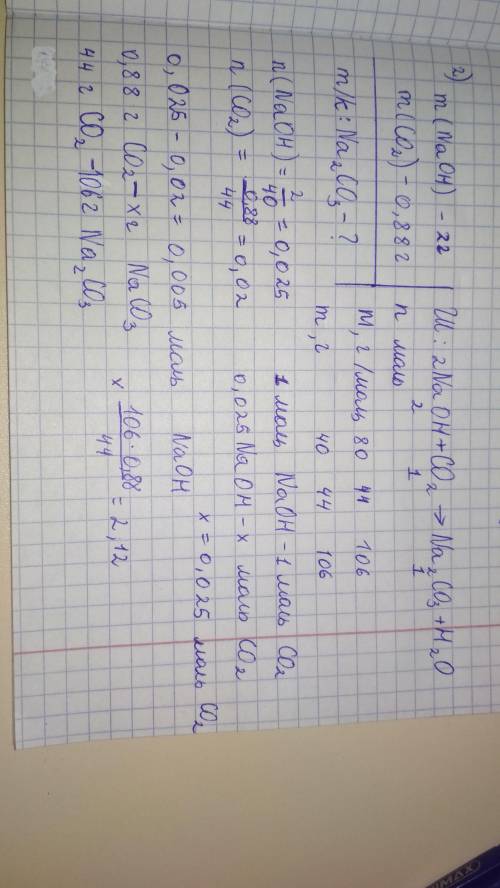 2) m(NaOH) - 2г
m(CO₂) - 0,88г
т/к: Na₂CO₃ - ?
Ш: 2NaOH + CO₂ → Na₂CO₃ + H₂O
n моль 2 1 1
M, г/моль 80 44 106
m, г 40 44 106
n(NaOH) = 2/40 = 0,025
1 моль NaOH - 1 моль CO₂
n(CO₂) = 0,88/44 = 0,02
0,025 NaOH - x моль CO₂
x = 0,025 моль CO₂
0,025 - 0,02 = 0,005 моль NaOH
0,88 г CO₂ - xг NaCO₃
44 г CO₂ - 106г Na₂CO₃
x 106·0,88/44 = 2,12
MAX